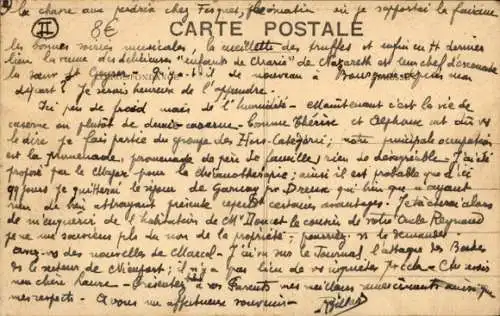 la chasse aux perdrix chez Fesques, où je rapportai la faisane
II 8€ CARTE POSTALE
les bonnes soirées musicales, la cueillette des truffes et enfin en dernier
lieu la revue des délicieux "enfants de chœur" de Nazareth et leur chef d'escouade
la sœur St CORRESPONDANCE y a-t-il de nouveau à depuis mon
départ? Je serais heureux de l'apprendre.
Ici peu de froid mais de l'humidité - Maintenant c'est la vie de
caserne ou plutôt de demi-caserne. Comme Thérèse et Alphonse ont dû vs
le dire je fais partie du groupe des Hors-Catégorie; notre principale occupation
est la promenade, promenade de père de famille, rien de désagréable - J'ai été
proposé par le Major pour la ; ainsi il est probable que d'ici
qq jours je quitterai le séjour de Garnay pr Dreux qui bien que n'ayant
rien de bien attrayant présente cependant certains avantages. Je tâcherai alors
de m'enquérir de l'habitation de Mr le cousin de votre Oncle Reynaud
je ne me souviens plus du nom de la propriété; pourriez-vs le demander.
Avez-vs des nouvelles de Marcel - J'ai vu sur le Journal l'attaque des Boches
ds le secteur de Nieuport; il n'y a pas lieu de vs inquiéter
mon chère heure - présentez à vos Parents mes meilleurs remerciements ainsi que
mes respects - A vous mes affectueux souvenirs -